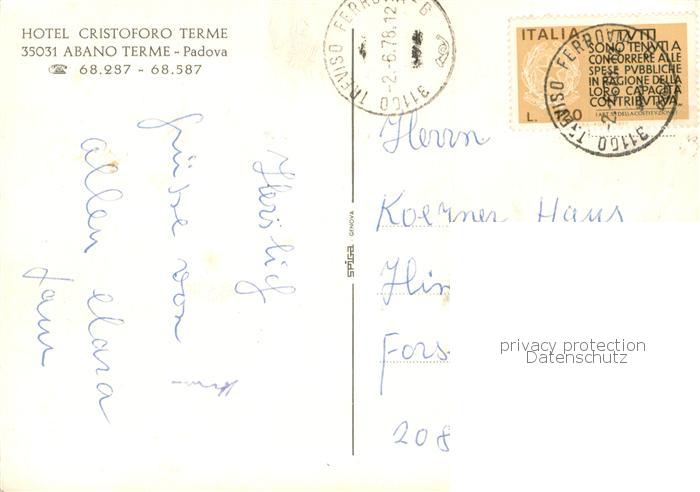 HOTEL CRISTOFORO TERME
35031 ABANO TERME - Padova
☎ 68.287 - 68.587
31100 TREVISO FERROVIA-B
-2.-6.78.12
ITALIA
TUTTI
SONO TENUTI A
CONCORRERE ALLE
SPESE PUBBLICHE
IN RAGIONE DELLA
LORO CAPACITÀ
CONTRIBUTIVA
ART. 53 DELLA COSTITUZIONE
L.
31100 TREVISO FERROVIA
Herrn
Koerner Hans
Hin
Fors
208
Herzlich
grüsse von
allen
SPIGA GENOVA
privacy protection
Datenschutz